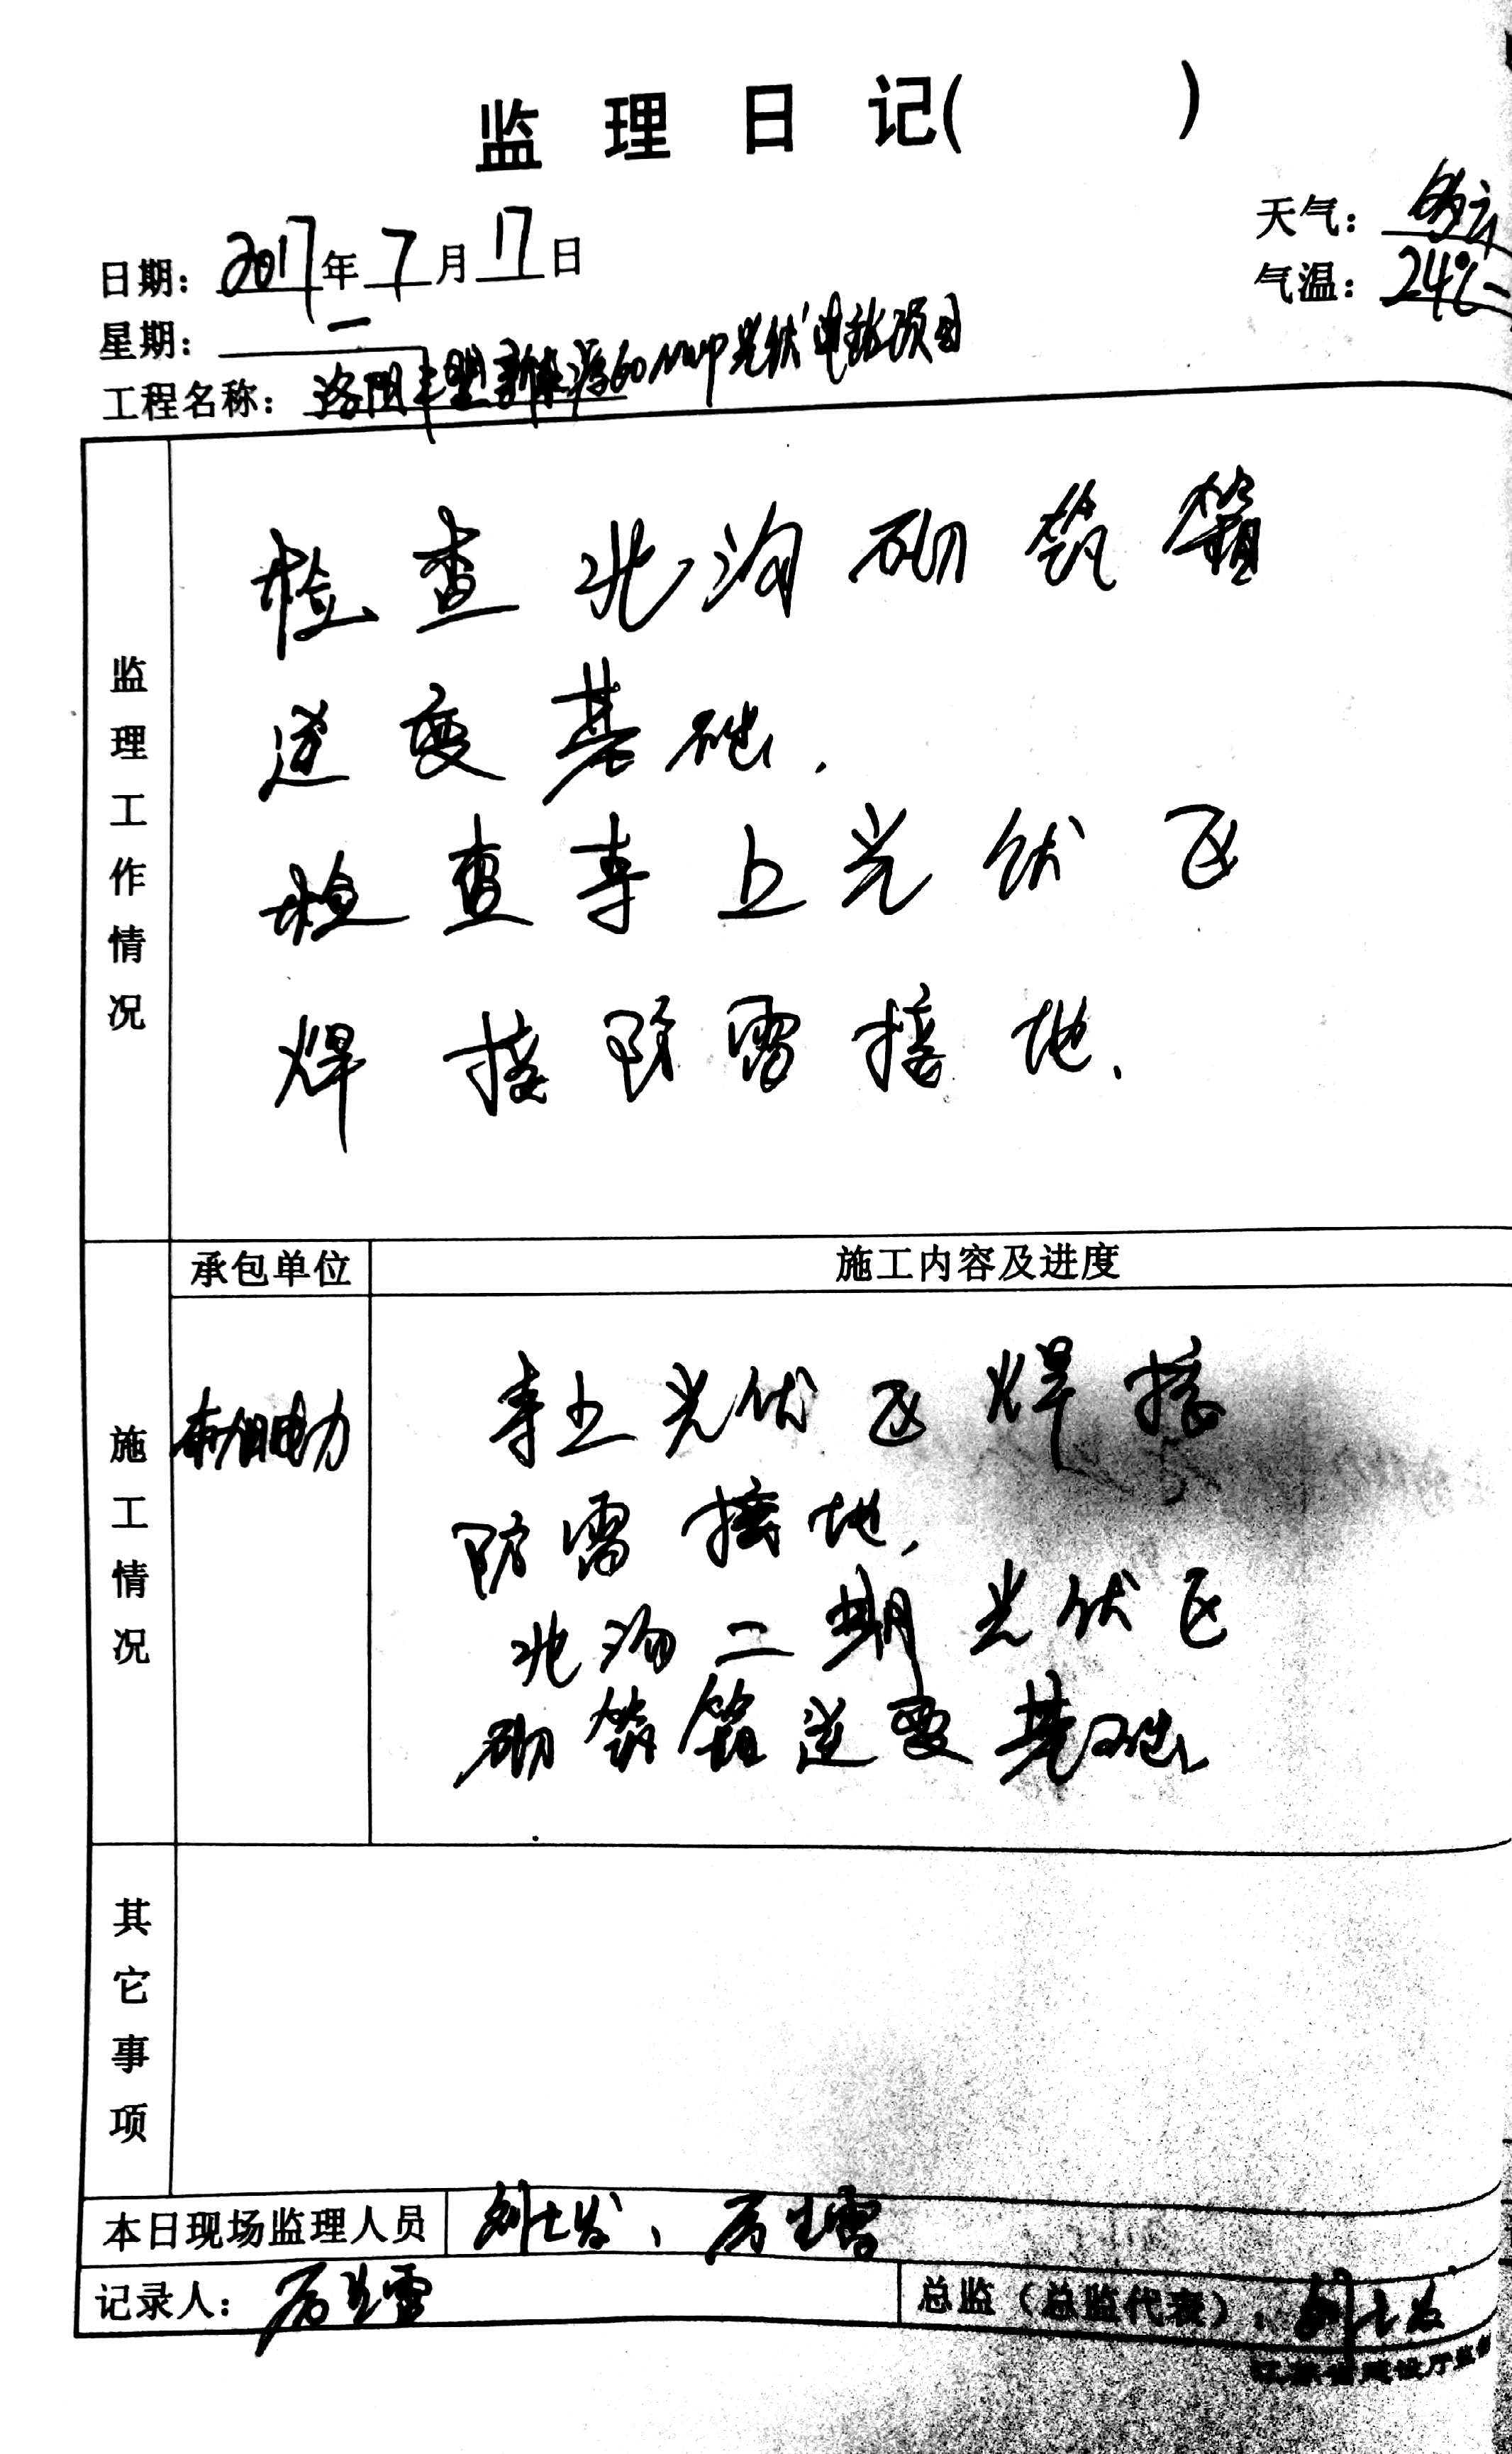 监理日记( )
天气：多云
日期：2017年7月17日
气温：24℃
星期：一
工程名称：洛阳丰盟新能源60MWP光伏电站项目
监理工作情况
检查北沟砌筑箱
逆变基础.
检查寺上光伏区
焊接防雷接地.
施工情况
承包单位
施工内容及进度
电力
寺上光伏区焊接
防雷接地,
北沟二期光伏区
砌筑箱逆变基础
其它事项
本日现场监理人员
记录人：
总监（总监代表）：